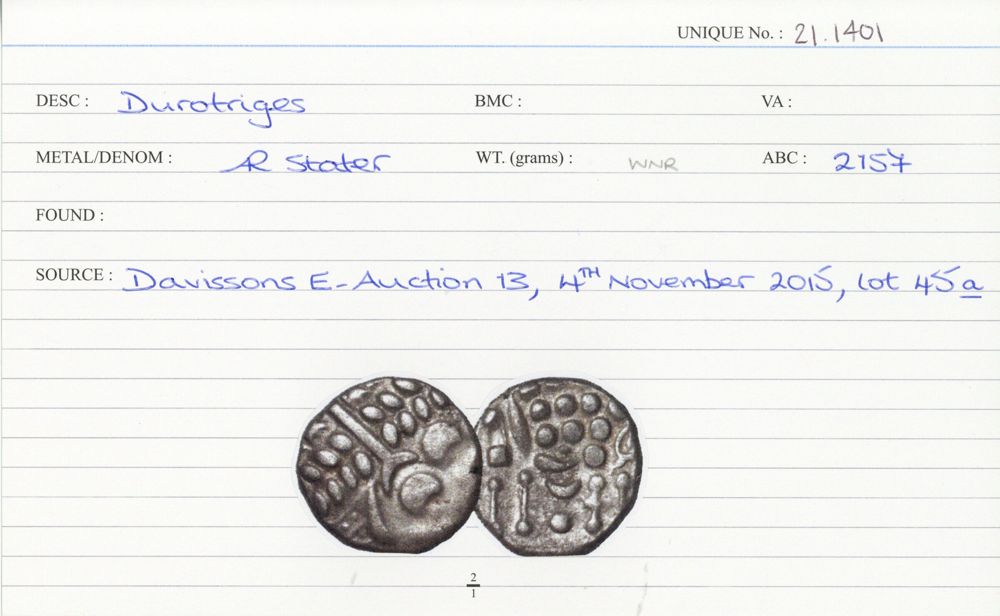 UNIQUE No. : 21.1401
DESC : Durotriges BMC : VA :
METAL/DENOM : AR Stater WT. (grams) : WNR ABC : 2157
FOUND :
SOURCE : Davissons E-Auction 13, 4TH November 2015, lot 45a
2
1